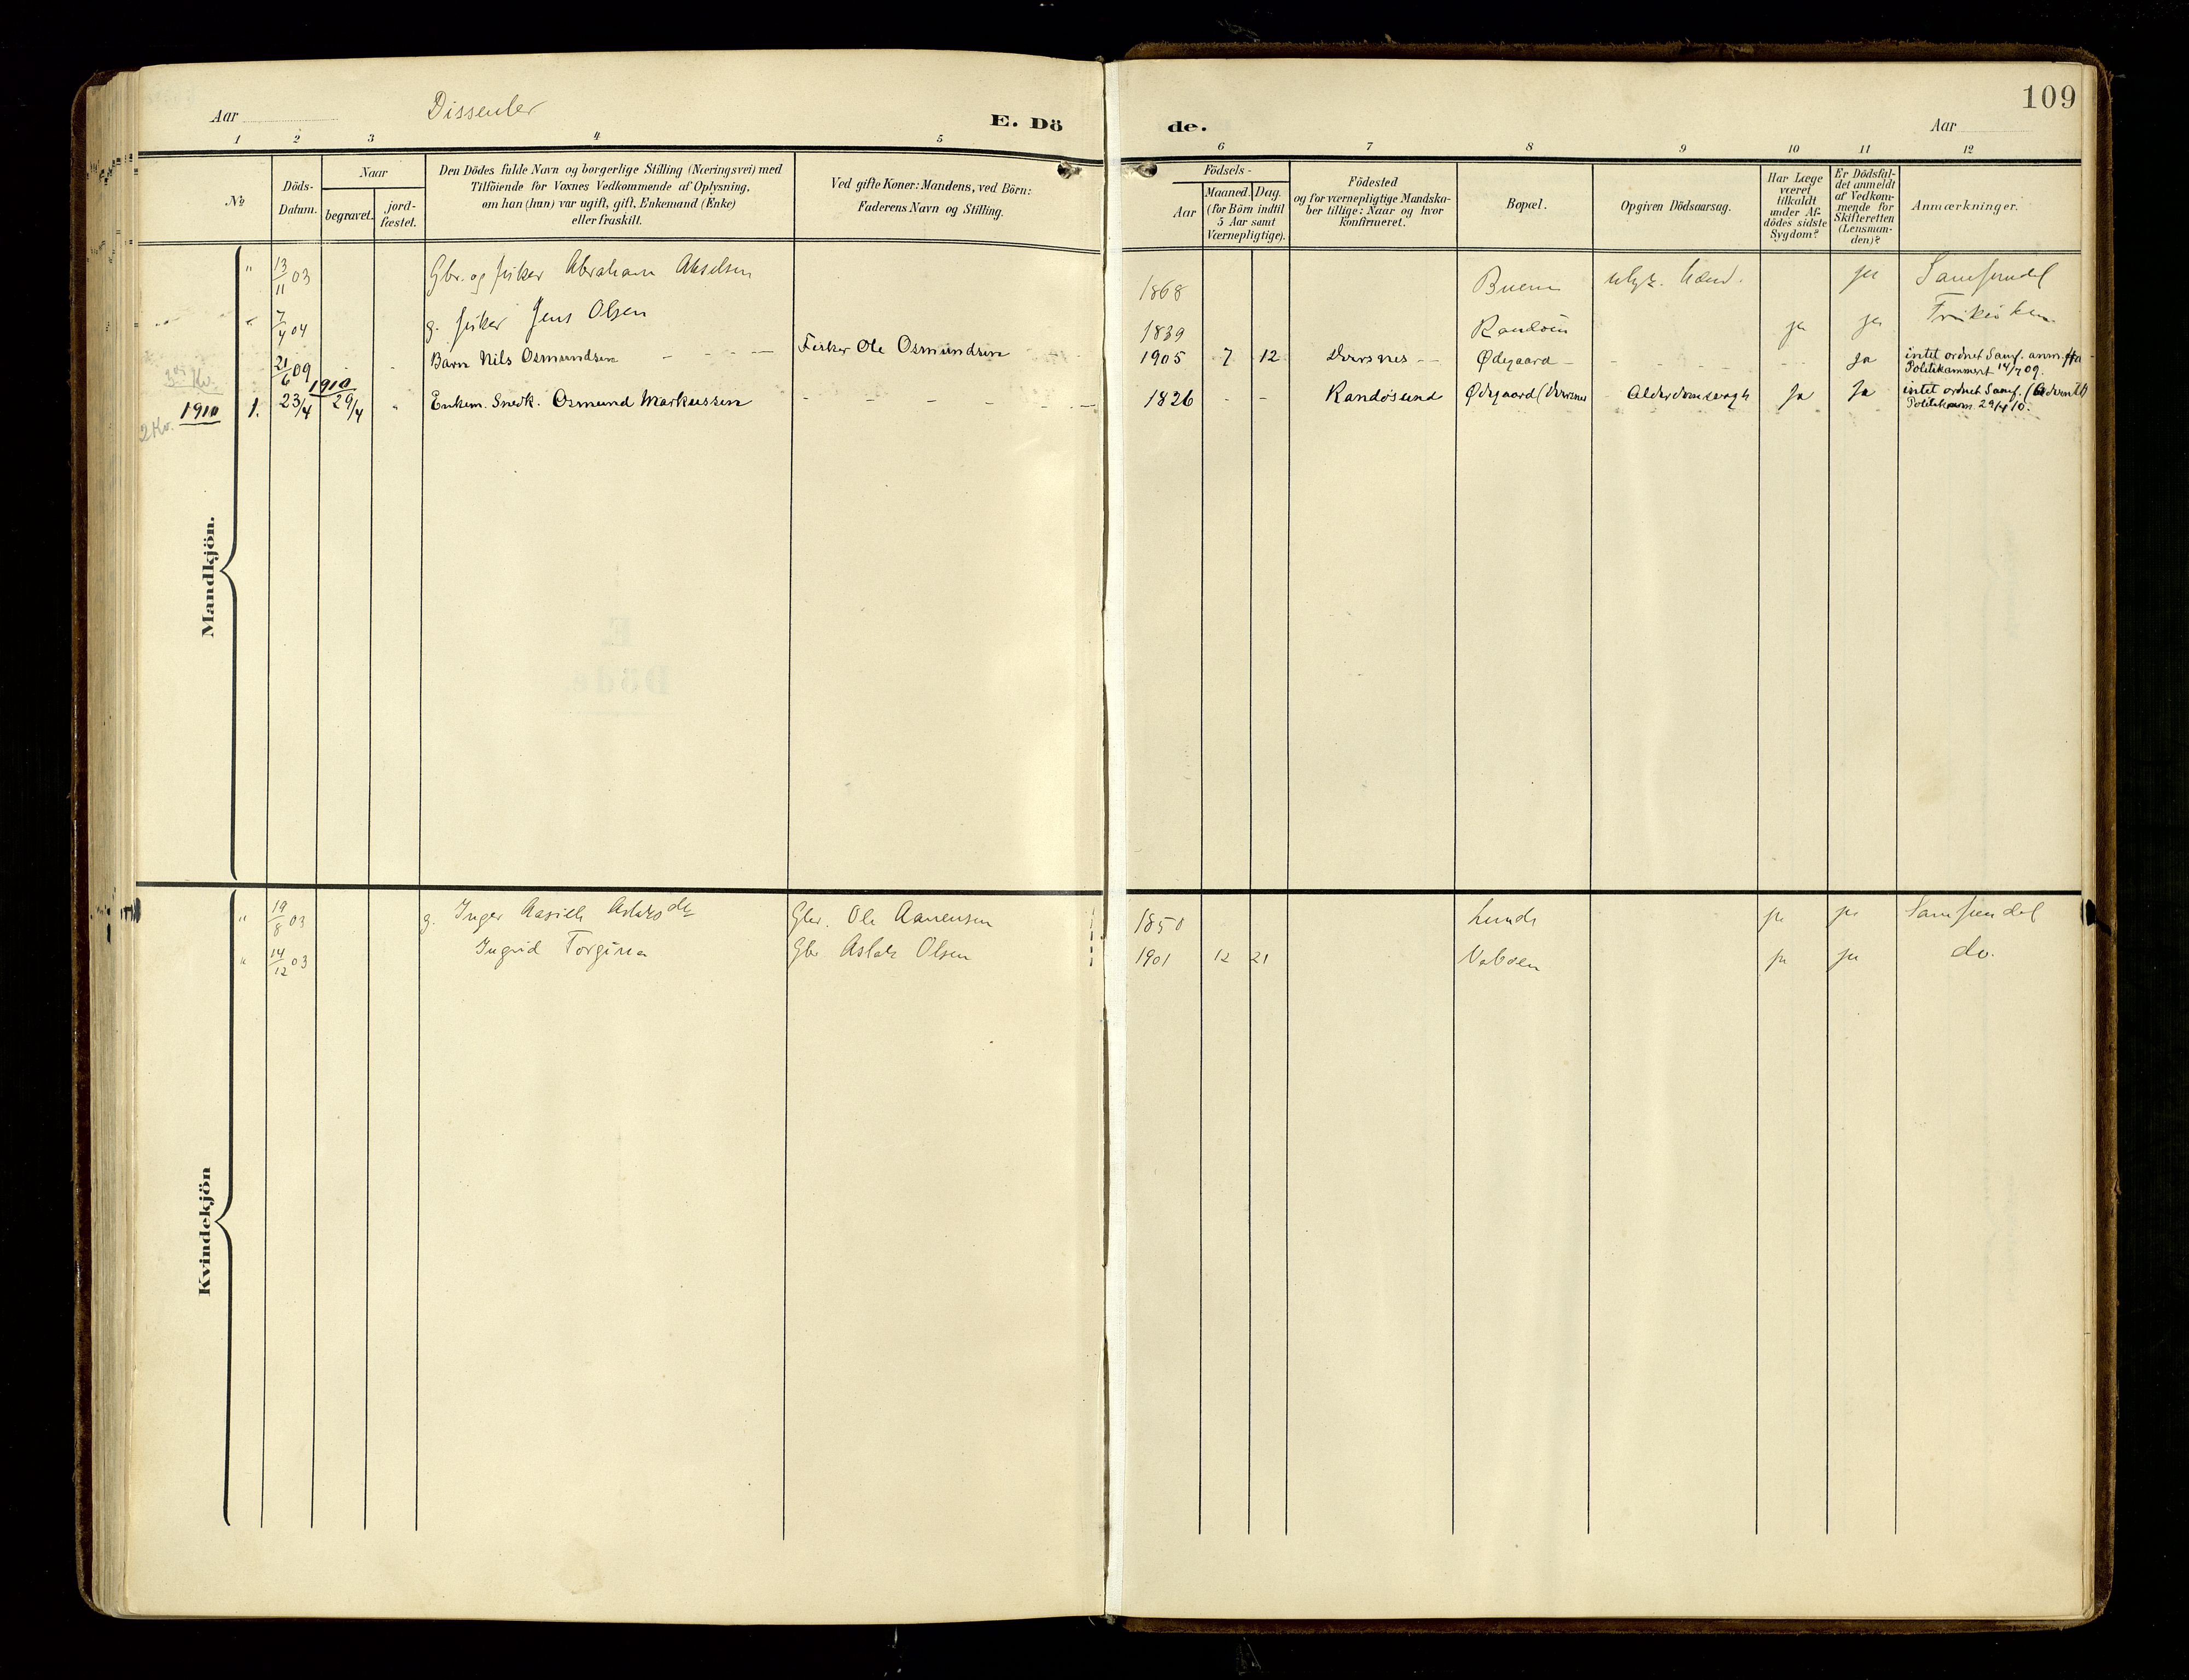 109
Aar
Dissenter
E. Dö
de.
Aar
1 2 3 4 5 6 7 8 9 10 11 12
No
Döds-
Datum.
Naar
begravet.
jord-
fæstet.
Den Dödes fulde Navn og borgerlige Stilling (Næringsvei) med
Tilföiende for Voxnes Vedkommende af Oplysning,
om han (hun) var ugift, gift, Enkemand (Enke)
eller fraskilt.
Ved gifte Koner: Mandens, ved Börn:
Faderens Navn og Stilling.
Födsels-
Aar
Maaned. Dag.
(for Börn indtil
5 Aar samt
Værnepligtige).
Födested
og for værnepligtige Mandska-
ber tillige: Naar og hvor
konfirmeret.
Bopæl.
Opgiven Dödsaarsag.
Har Læge
været
tilkaldt
under Af-
dödes sidste
Sygdom?
Er Dödsfal-
det anmeldt
af Vedkom-
mende for
Skifteretten
(Lensman-
den)?
Anmærkninger.
Mandkjön.
" 13/11 03 Gbr. og fisker Abraham Akselsen 1868 ja Samfundet
" 7/4 04 g. fisker Jens Olsen 1839 Randöen ja ja Frikirken
21/6 09 " Barn Nils Osmundsen Fisker Ole Osmundsen 1905 7 12 Ødegaard ja intet ordnet Samf. anm. fra
Politikammert 14/7 09.
3die Kv.
1910
1910 1. 23/4 29/4 " Enkem. Snedk. Osmund Markussen 1826 - - Randøsund Ødegaard Ja Ja intet ordnet Samf.
2 Kv.
Politikam. 29/4 10.
Kvindekjön
" 19/8 03 g. Inger Gbr. Ole Aanensen 1850 Lunde ja ja Samfundet
" 14/12 03 Ingrid Torgina Gbr Aslak Olsen 1901 12 21 ja ja do.